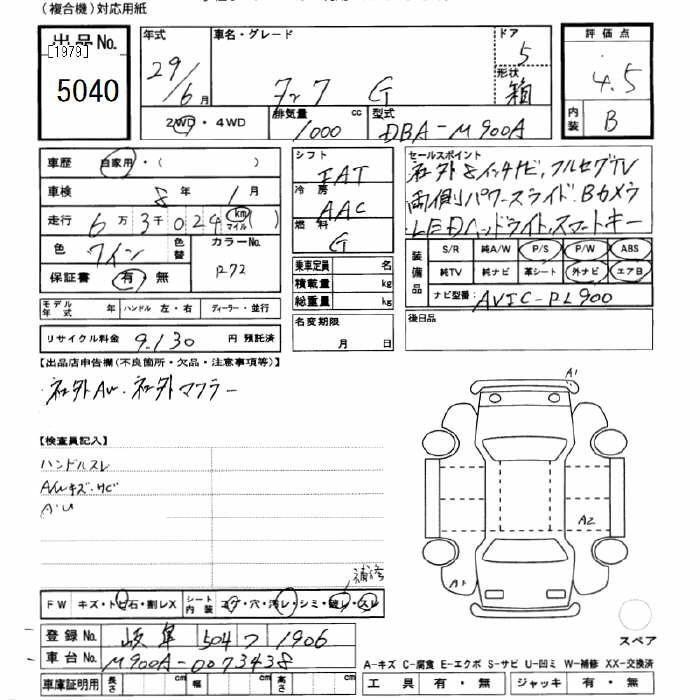 (複合機)対応用紙
出品No.
[1979]
5040
年式
29/6月
車名・グレード
タンク G
ドア
5
形状
箱
評価点
4.5
内装
B
2WD・4WD
排気量
1000 cc
型式
DBA-M900A
車歴 自家用・( )
車検 8年 1月
走行 6万3千024 km マイル ( )
色 ワイン
色替
カラーNo.
R72
保証書 有・無
モデル年式 年 ハンドル 左・右 ディーラー・並行
リサイクル料金 9,130 円 預託済
シフト
FAT
冷房
AAC
燃料
G
乗車定員 名
積載量 kg
総重量 kg
名変期限
月 日
セールスポイント
社外8インチナビ、フルセグTV
両側パワースライド、Bカメラ
LEDヘッドライト、スマートキー
装備品
S/R 純A/W P/S P/W ABS
純TV 純ナビ 革シート 外ナビ エアB
ナビ型番: AVIC-RL900
後日品
【出品店申告欄(不良箇所・欠品・注意事項等)】
・社外AW ・社外マフラー
【検査員記入】
ハンドルスレ
A/Wキズ・サビ
A・U
補修
FW キズ・トビ石・割レX
シート内装 コゲ・穴・汚レ・シミ・破レ・スレ
登録No. 岐阜 504 つ 1906
車台No. M900A-0073438
車庫証明用 長さ cm 幅 cm 高さ cm
A1
A2
A1
スペア
A-キズ C-腐食 E-エクボ S-サビ U-凹ミ W-補修 XX-交換済
工具 有・無 ジャッキ 有・無